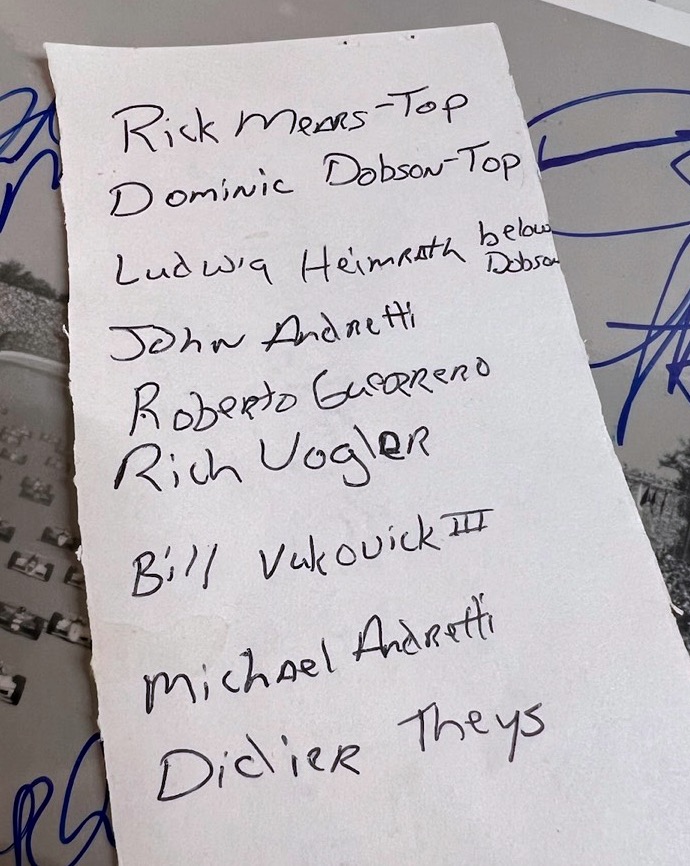 Rick Mears-Top
Dominic Dobson-Top
Ludwig Heimrath below
Dobson
John Andretti
Roberto Guerrero
Rich Vogler
Bill Vukovick III
Michael Andretti
Didier Theys